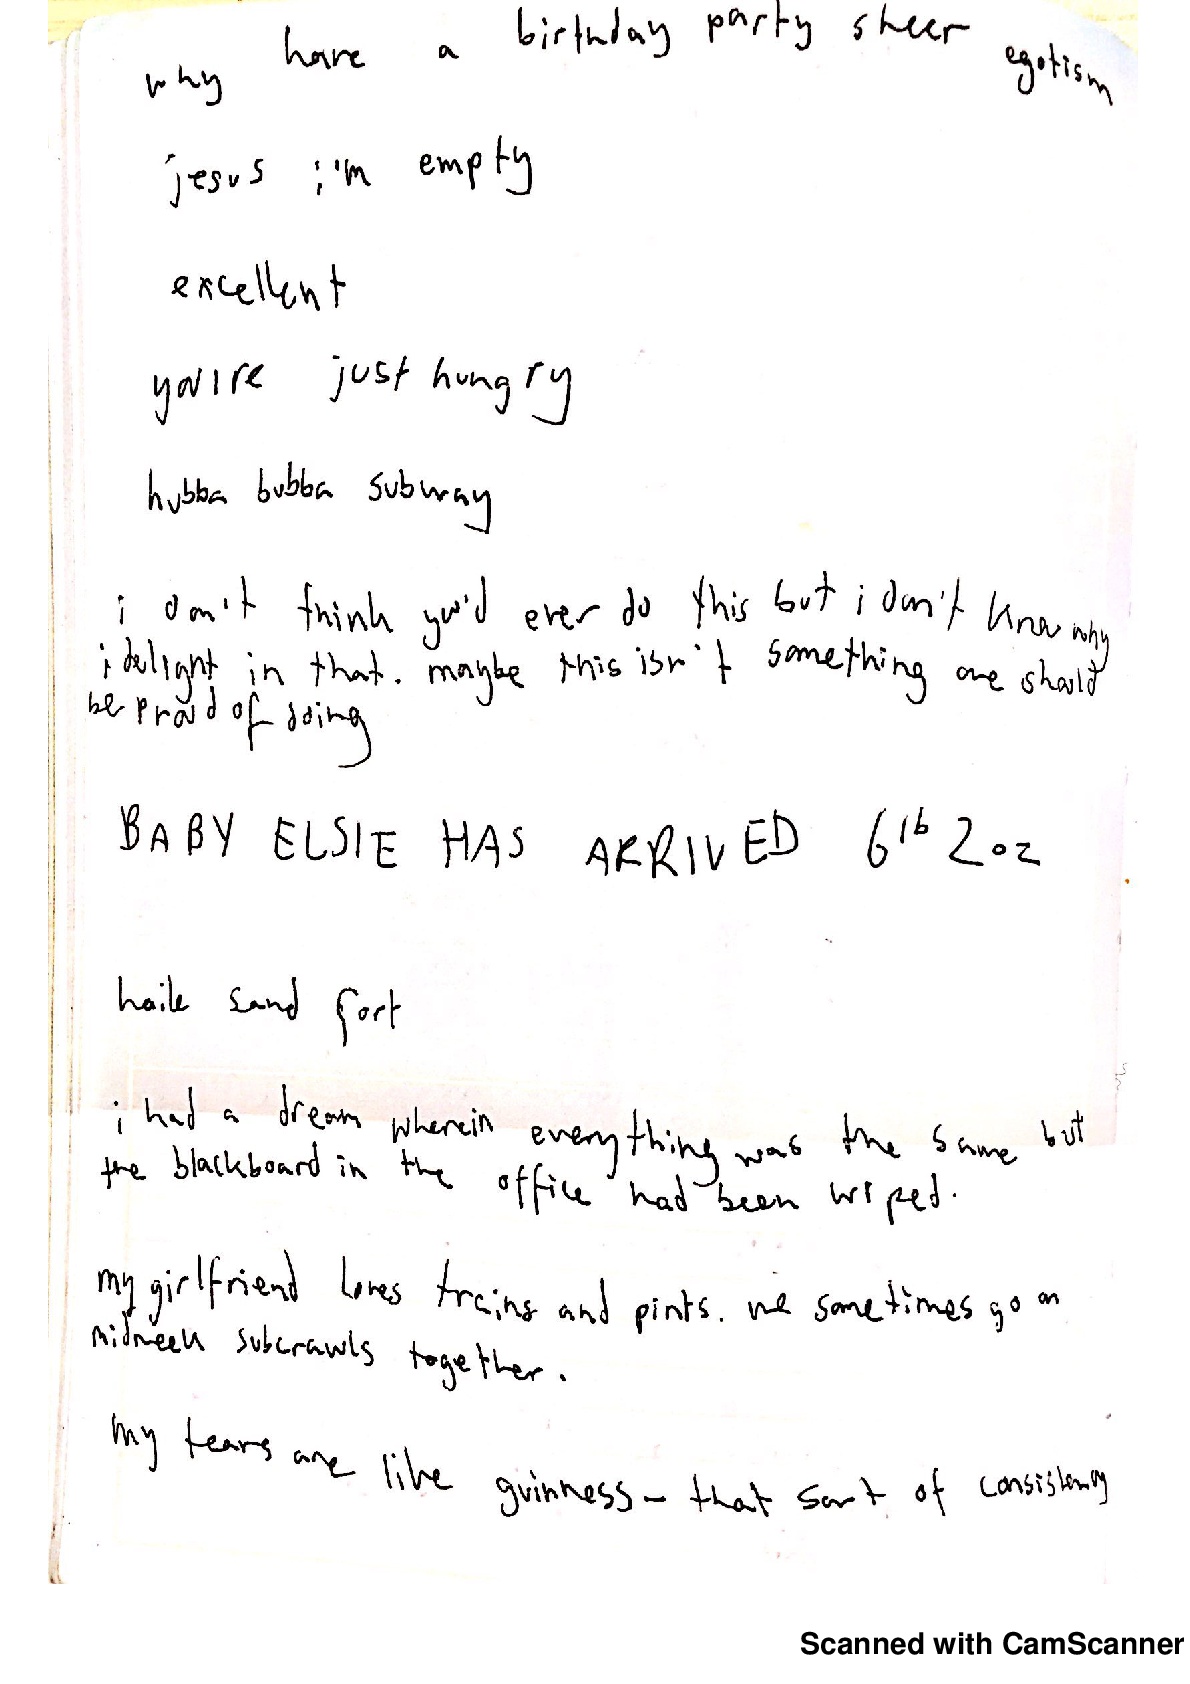 why have a birthday party sheer egotism
jesus i'm empty
excellent
you're just hungry
hubba bubba subway
i don't think you'd ever do this but i don't know why
i delight in that. maybe this isn't something one should
be proud of doing
BABY ELSIE HAS ARRIVED 6lb 2oz
haile sand fort
i had a dream wherein everything was the same but
the blackboard in the office had been wiped.
my girlfriend loves trains and pints. we sometimes go on
midweek subcrawls together.
my tears are like guinness – that sort of consistency
Scanned with CamScanner